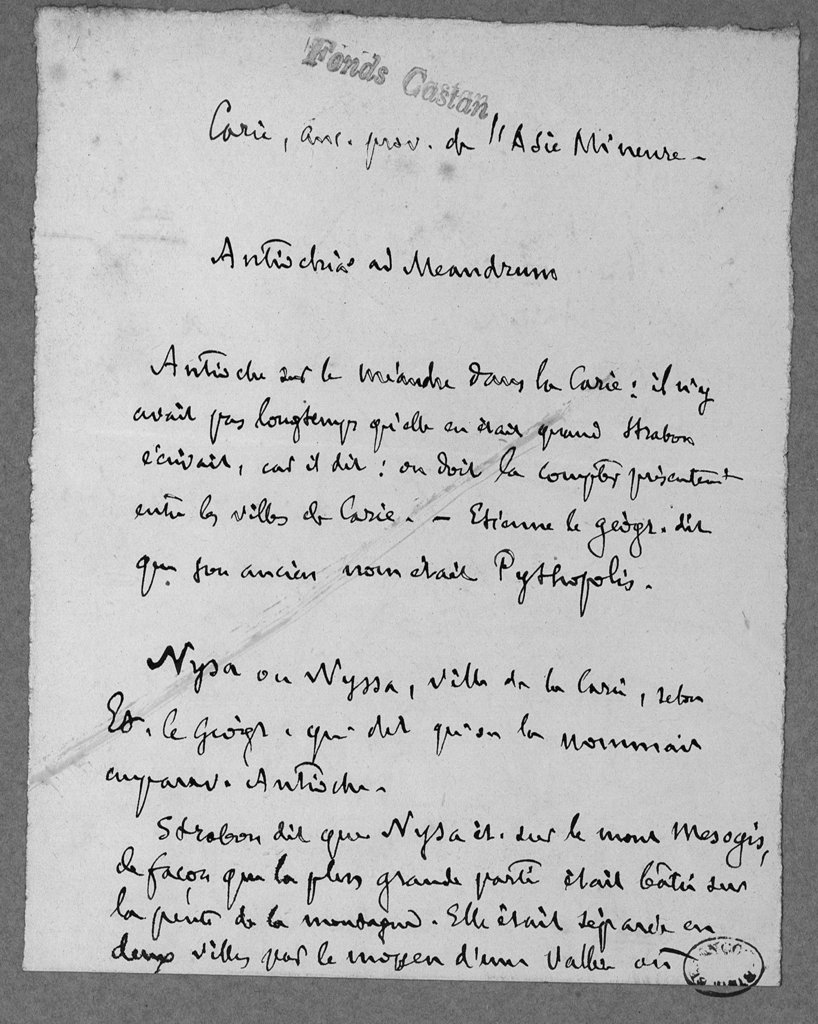 Fonds Castan
Carie, anc. prov. de l'Asie Mineure -
Antiochia ad Meandrum
Antioche sur le méandre dans la Carie : il n'y
avait pas longtemps qu'elle en était quand Strabon
écrivait, car il dit : on doit la compter présentemt
entre les villes de Carie. - Etienne le géogr. dit
que son ancien nom était Pythopolis.
Nysa ou Nyssa, ville de la Carie, selon
Et. le Géogr. qui dit qu'on la nommait
auparav. Antioche.
Strabon dit que Nysa ét. sur le mont Mesogis,
de façon que la plus grande partie était bâtie sur
la pente de la montagne. Elle était séparée en
deux villes par le moyen d'une vallée où